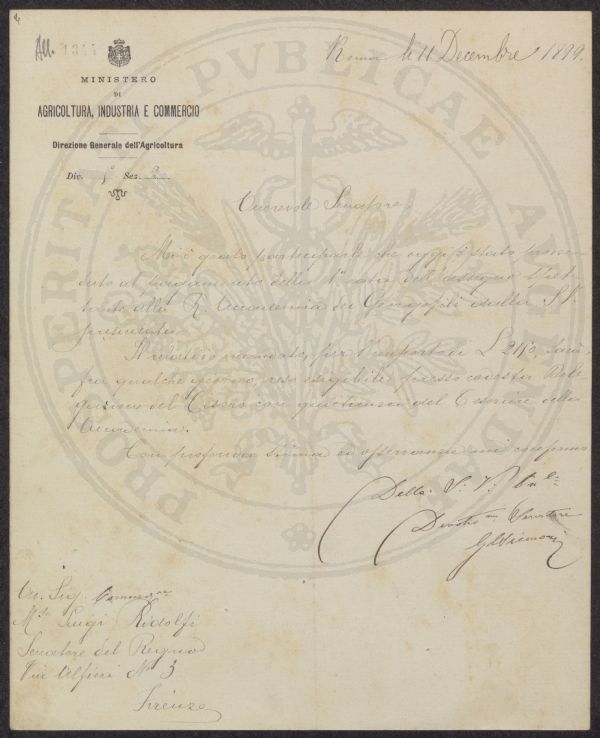 All. 1311
MINISTERO
DI
AGRICOLTURA, INDUSTRIA E COMMERCIO
Direzione Generale dell'Agricoltura
Div. 1ª Sez. 2
Roma li 11 Decembre 1899.
Onorevole Senatore,
Mi è grato parteciparle che oggi è stato
al pagamento della 1ª rata dell'assegno
alla R. Accademia dei Georgofili dalla S.V.
presieduta.
Il relativo mandato, per l'importo di L sarà
fra qualche giorno, reso esigibile presso codesta
del Tesoro con quietanza del Tesoriere della
Accademia.
Con profonda stima ed osservanza mi confermo
Della S. V. On.
Devoto Servitore
On. Sig.
M.se Luigi Ridolfi
Senatore del Regno
Via Alfieri Nº 3
Firenze
PROSPERITATI PUBLICAE AUGENDAE